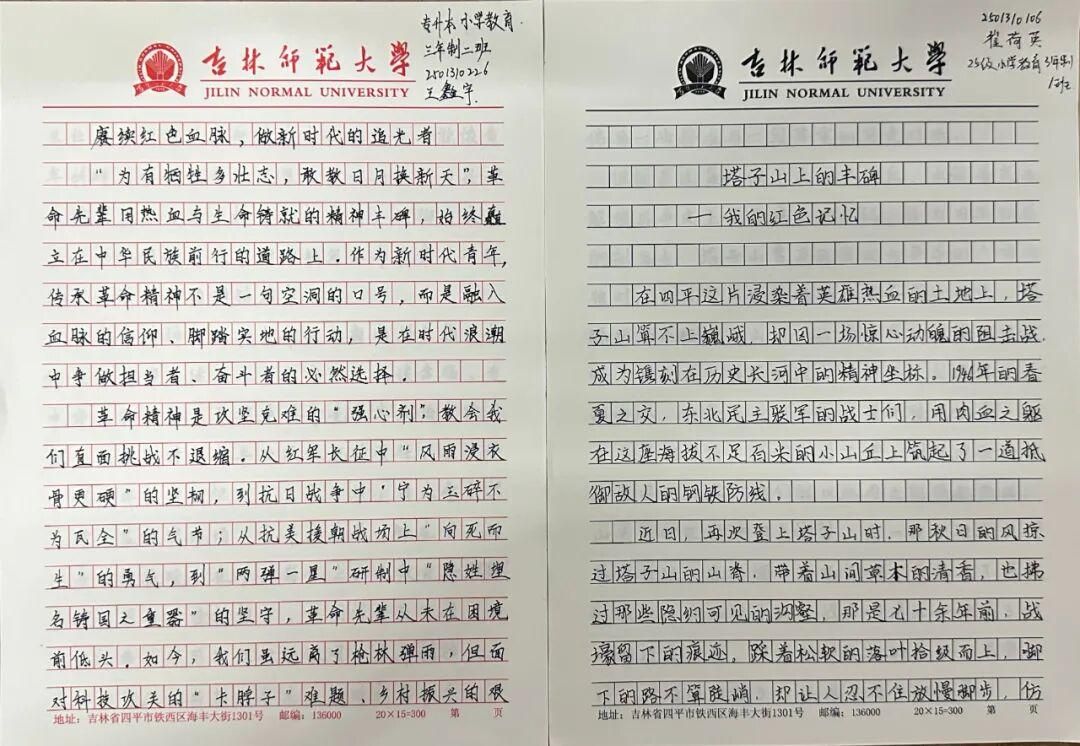 专升本 小学教育.
三年制二班
2501310226
王鑫宇.
吉林师范大学
JILIN NORMAL UNIVERSITY
赓续红色血脉，做新时代的追光者
“为有牺牲多壮志，敢教日月换新天”，革
命先辈用热血与生命铸就的精神丰碑，始终矗
立在中华民族前行的道路上．作为新时代青年，
传承革命精神不是一句空洞的口号，而是融入
血脉的信仰、脚踏实地的行动，是在时代浪潮
中争做担当者、奋斗者的必然选择．
革命精神是攻坚克难的“强心剂”教会我
们直面挑战不退缩．从红军长征中“风雨浸衣
骨更硬”的坚韧，到抗日战争中“宁为玉碎不
为瓦全”的气节；从抗美援朝战场上“向死而
生”的勇气，到“两弹一星”研制中“隐姓埋
名铸国之重器”的坚守，革命先辈从未在困境
前低头．如今，我们虽远离了枪林弹雨，但面
对科技攻关的“卡脖子”难题、乡村振兴的艰
地址：吉林省四平市铁西区海丰大街1301号 邮编：136000 20×15=300 第 页
2501310106
崔荷英
25级小学教育3年制
1班
吉林师范大学
JILIN NORMAL UNIVERSITY
塔子山上的丰碑
—我的红色记忆
在四平这片浸染着英雄热血的土地上，塔
子山算不上巍峨，却因一场惊心动魄的阻击战，
成为镌刻在历史长河中的精神坐标。1946年的春
夏之交，东北民主联军的战士们，用肉血之躯
在这座海拔不足百米的小山丘上筑起了一道抵
御敌人的钢铁防线．
近日，再次登上塔子山时，那秋日的风掠
过塔子山的山脊，带着山间草木的清香，也拂
过那些隐约可见的沟壑，那是七十余年前，战
壕留下的痕迹，踩着松软的落叶拾级而上，脚
下的路不算陡峭，却让人忍不住放慢脚步，仿
地址：吉林省四平市铁西区海丰大街1301号 邮编：136000 20×15=300 第 页